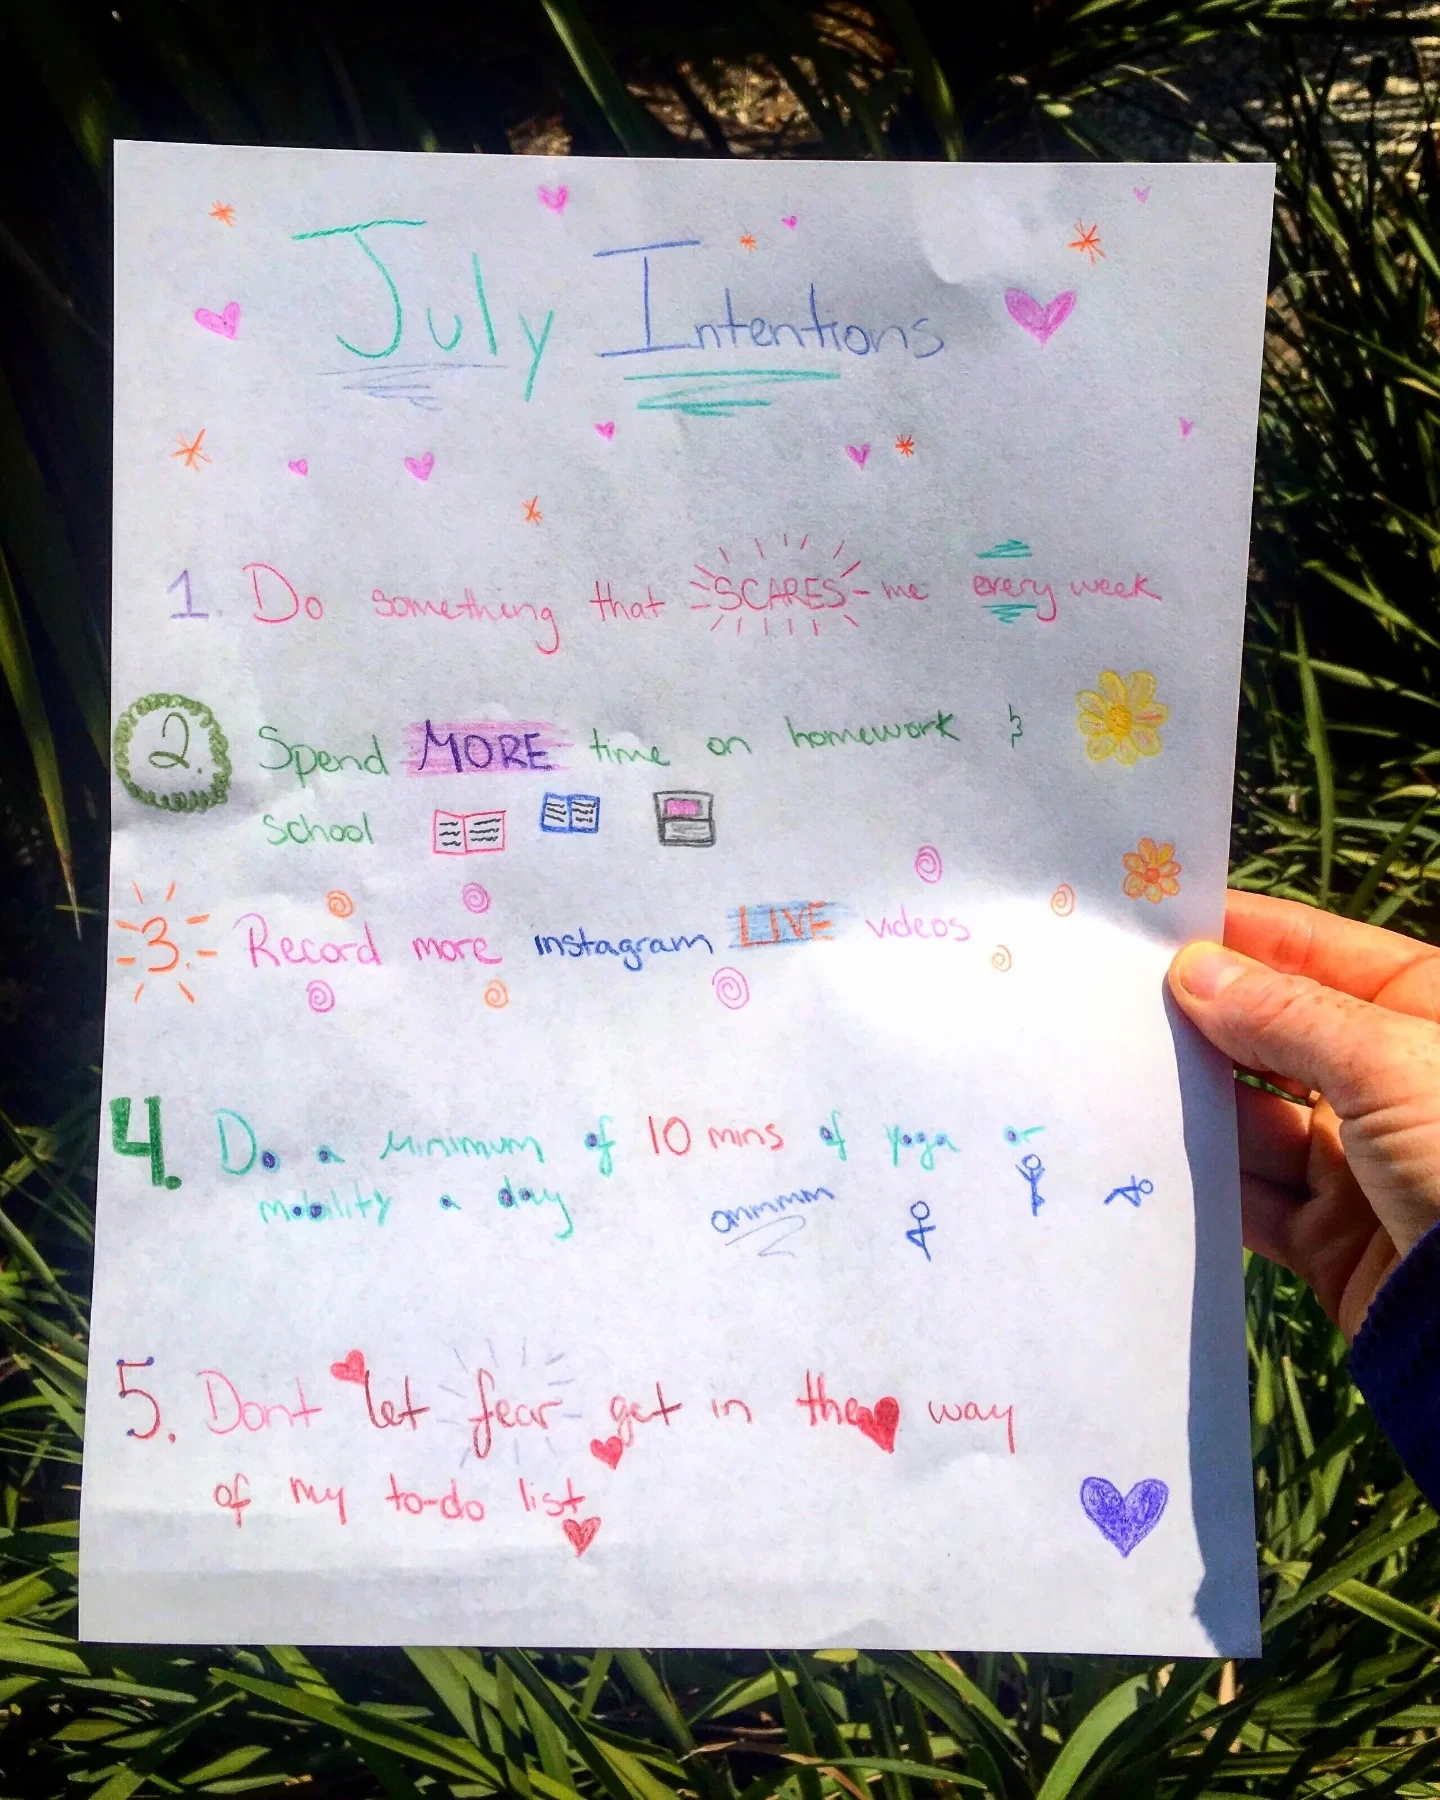 July Intentions
1. Do something that SCARES me every week
2. Spend MORE time on homework &
school
3. Record more instagram LIVE videos
4. Do a minimum of 10 mins of yoga or
mobility a day ommmm
5. Dont let fear get in the way
of my to-do list